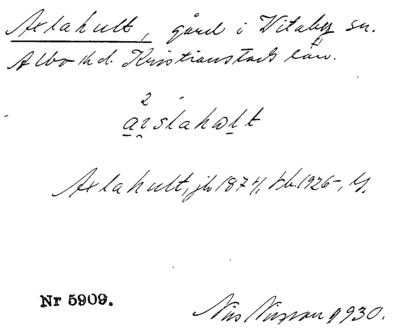 Axlahult, gård i Vitaby sn.
Albo hd. Kristianstads län.
2
aislahult
Axlahult, jb 1874, bk. 1926-, G.
Nr 5909.
Nils Nilsson 1930.